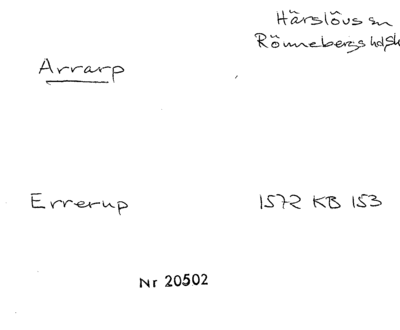 Härslövs sn
Rönnebergs hd, Sk
Arrarp
Errerup
1572 KB 153
Nr 20502